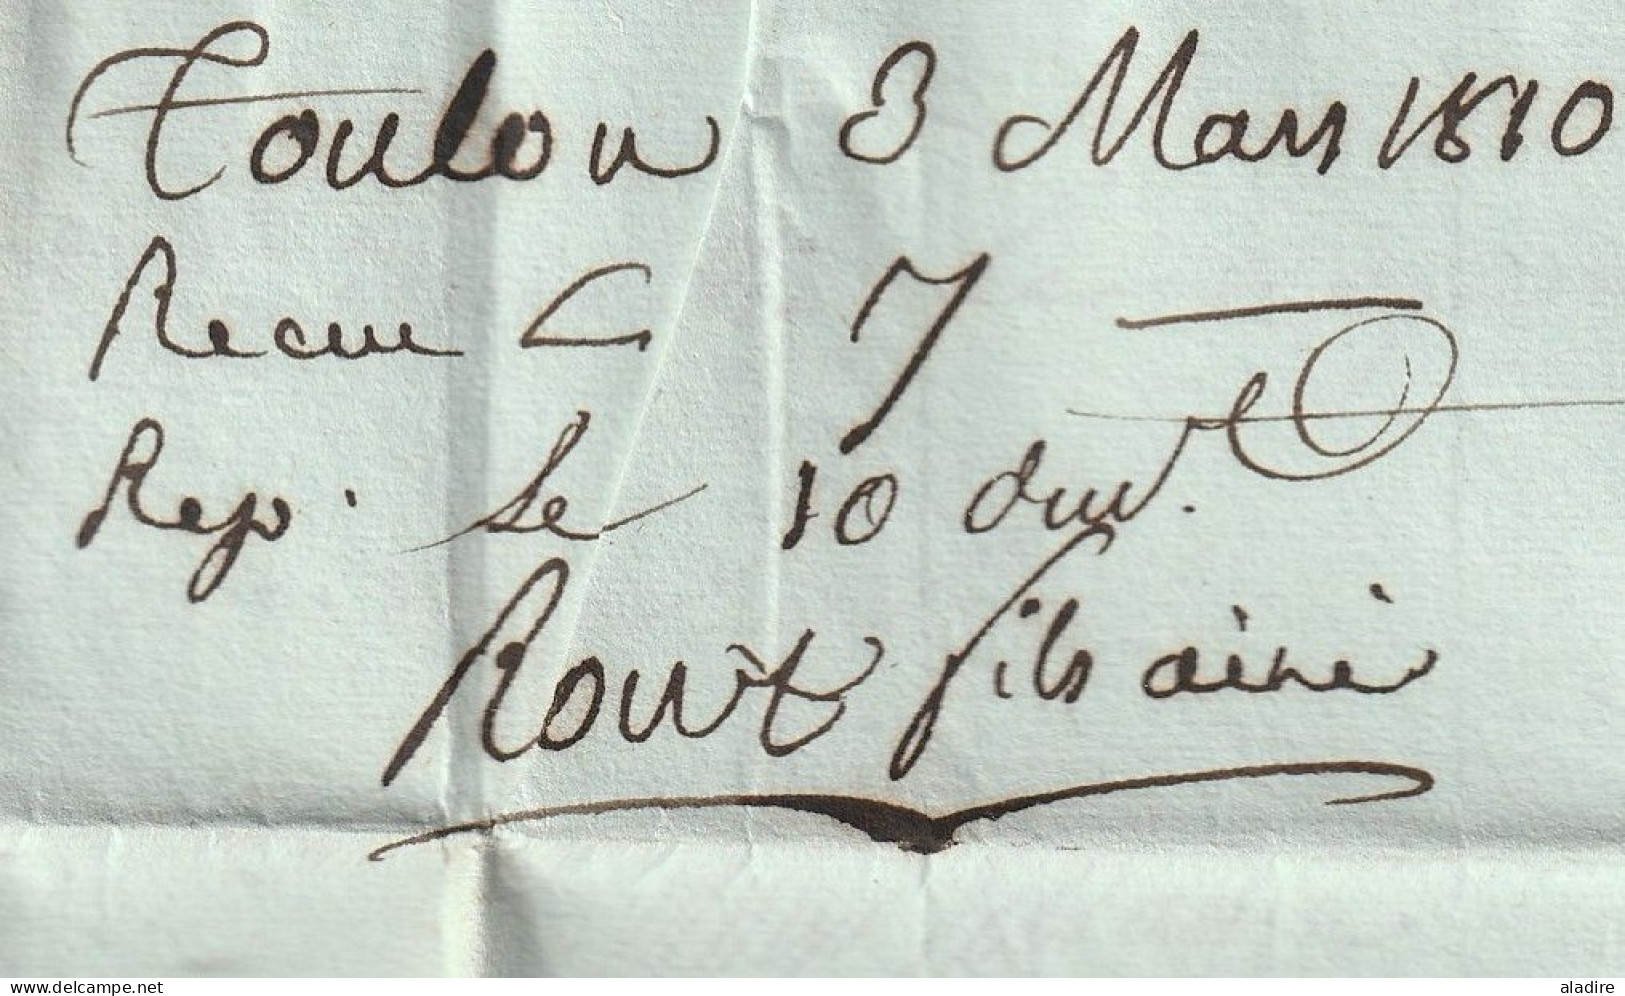 Toulon 3 Mars 1810
Recue le 7
Rep. le 10 dud.
Roux fils ainé
delcampe.net
aladire